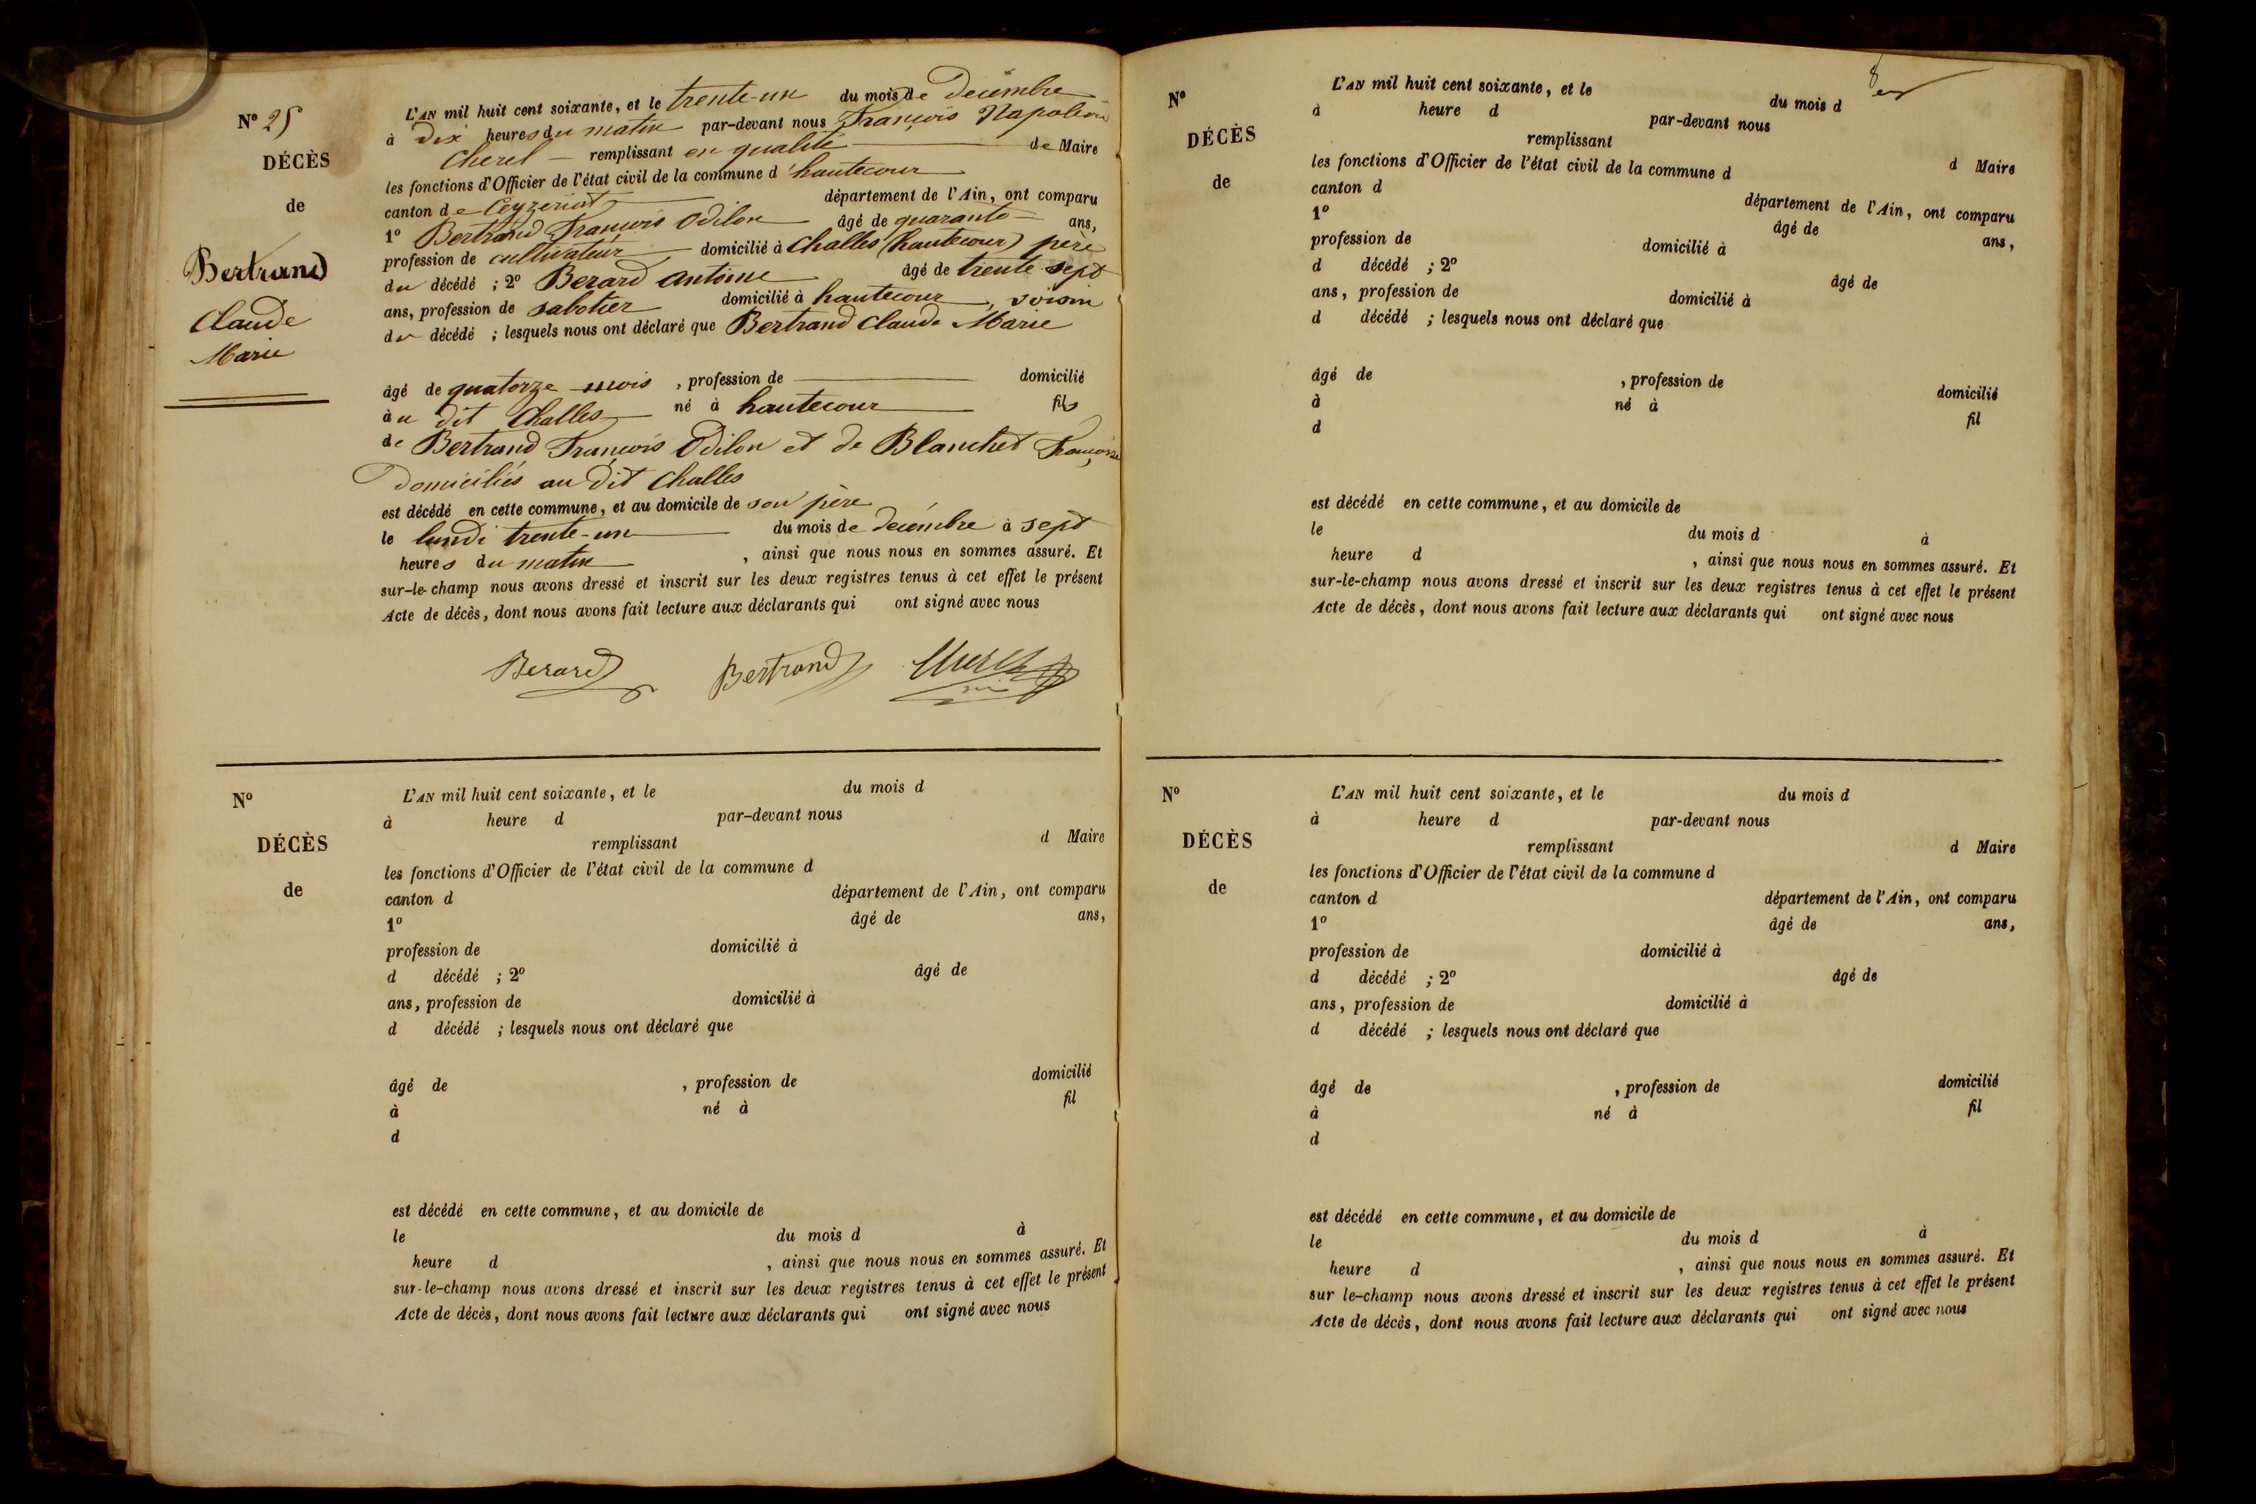 N° 25
DÉCÈS
de
Bertrand
Claude
Marie
L'AN mil huit cent soixante, et le trente-un du mois de Décembre
à Dix heures du matin par-devant nous François Napoléon
Cherel remplissant en qualité de Maire
les fonctions d'Officier de l'état civil de la commune d'hautecour
canton de Ceyzeriat département de l'Ain, ont comparu
1° Bertrand François Odilon âgé de quarante ans,
profession de cultivateur domicilié à Challes (hautecour) père
du décédé ; 2° Berard Antoine âgé de trente sept
ans, profession de sabotier domicilié à hautecour, voisin
du décédé ; lesquels nous ont déclaré que Bertrand Claude Marie
âgé de quatorze mois , profession de domicilié
au dit Challes né à hautecour fils
de Bertrand François Odilon et de Blanchet Françoise
Domiciliés au dit Challes
est décédé en cette commune, et au domicile de son père
le lundi trente-un du mois de décembre à sept
heures du matin , ainsi que nous nous en sommes assuré. Et
sur-le-champ nous avons dressé et inscrit sur les deux registres tenus à cet effet le présent
Acte de décès, dont nous avons fait lecture aux déclarants qui ont signé avec nous
Berard Bertrand Cherel
N°
DÉCÈS
de
L'AN mil huit cent soixante, et le du mois d
à heure d par-devant nous
remplissant d Maire
les fonctions d'Officier de l'état civil de la commune d
canton d département de l'Ain, ont comparu
1° âgé de ans,
profession de domicilié à
d décédé ; 2° âgé de
ans, profession de domicilié à
d décédé ; lesquels nous ont déclaré que
âgé de , profession de domicilié
à né à fil
d
est décédé en cette commune, et au domicile de
le du mois d à
heure d , ainsi que nous nous en sommes assuré. Et
sur-le-champ nous avons dressé et inscrit sur les deux registres tenus à cet effet le présent
Acte de décès, dont nous avons fait lecture aux déclarants qui ont signé avec nous
N°
DÉCÈS
de
L'AN mil huit cent soixante, et le du mois d
à heure d par-devant nous
remplissant d Maire
les fonctions d'Officier de l'état civil de la commune d
canton d département de l'Ain, ont comparu
1° âgé de ans,
profession de domicilié à
d décédé ; 2° âgé de
ans, profession de domicilié à
d décédé ; lesquels nous ont déclaré que
âgé de , profession de domicilié
à né à fil
d
est décédé en cette commune, et au domicile de
le du mois d à
heure d , ainsi que nous nous en sommes assuré. Et
sur-le-champ nous avons dressé et inscrit sur les deux registres tenus à cet effet le présent
Acte de décès, dont nous avons fait lecture aux déclarants qui ont signé avec nous
N°
DÉCÈS
de
L'AN mil huit cent soixante, et le du mois d
à heure d par-devant nous
remplissant d Maire
les fonctions d'Officier de l'état civil de la commune d
canton d département de l'Ain, ont comparu
1° âgé de ans,
profession de domicilié à
d décédé ; 2° âgé de
ans, profession de domicilié à
d décédé ; lesquels nous ont déclaré que
âgé de , profession de domicilié
à né à fil
d
est décédé en cette commune, et au domicile de
le du mois d à
heure d , ainsi que nous nous en sommes assuré. Et
sur le-champ nous avons dressé et inscrit sur les deux registres tenus à cet effet le présent
Acte de décès, dont nous avons fait lecture aux déclarants qui ont signé avec nous